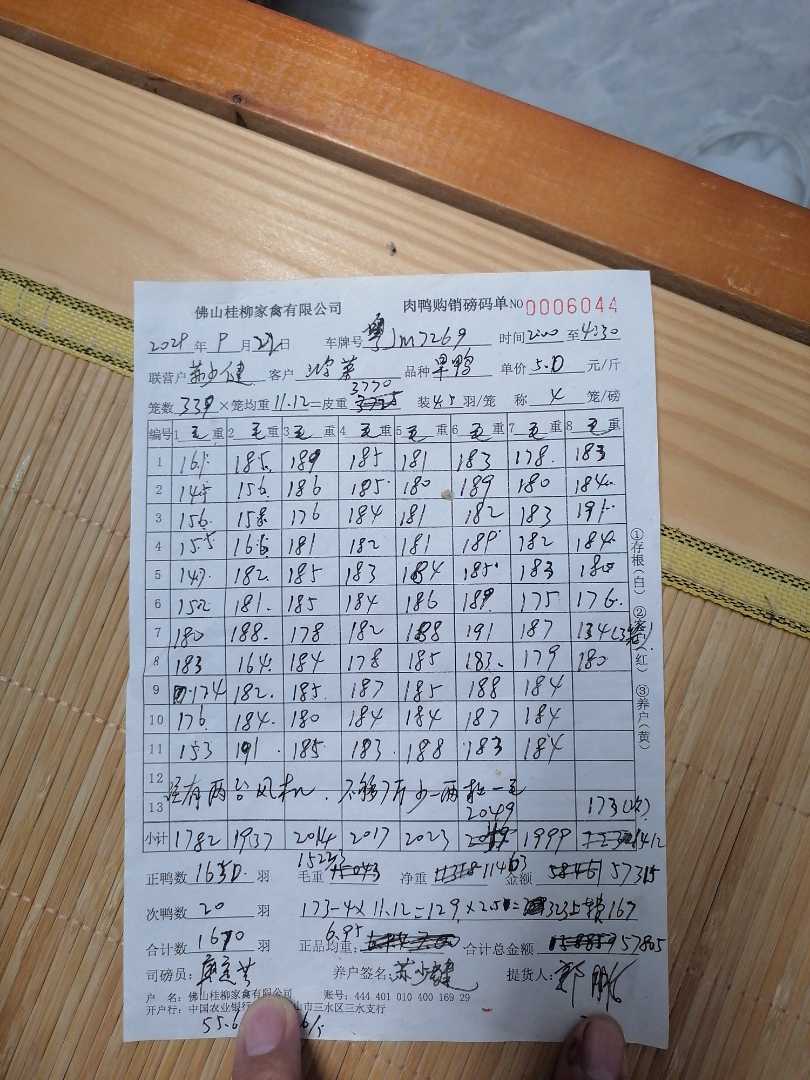 佛山桂柳家禽有限公司 肉鸭购销磅码单 NO 0006044
年 9 月 日 车牌号 粤Jm7269 时间 2:00 至 4:30
联营户 苏少健 客户 品种 果鸭 单价 5.0 元/斤
3770
笼数 339 × 笼均重 11.12 = 皮重 装 4.5 羽/笼 称 4 笼/磅
编号 1 毛 重 2 毛 重 3 毛 重 4 毛 重 5 毛 重 6 毛 重 7 毛 重 8 毛 重
1 161 185 189 185 181 183 178 183
2 145 156 186 185 180 189 180 184
3 156 158 176 184 181 182 183 191
4 155 166 181 182 181 189 182 184
5 147 182 185 183 184 185 183 180
6 152 181 185 184 186 189 175 176
7 180 188 178 182 188 191 187 134
8 183 164 184 178 185 183 179 180
9 174 182 185 187 185 188 184
10 176 184 180 184 184 187 184
11 153 191 185 183 188 183 184
12
没有两台风机 不够7斤少一两扣一毛
13 2049 173(次)
小计 1782 1937 2014 2017 2023 1999 1412
正鸭数 1650 羽 毛重 15233 净重 11463 金额 57315
次鸭数 20 羽 173-4×11.12=129×2.50=
合计数 1670 羽 正品均重: 6.95 合计总金额
司磅员: 养户签名: 苏少健 提货人:
户 名: 佛山桂柳家禽有限公司 账号: 444 401 010 400 169 29
开户行: 中国农业银行 山市三水区三水支行
①存根(白) ② (红) ③养户(黄)